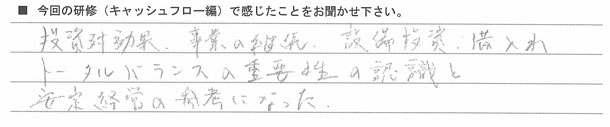 ■ 今回の研修（キャッシュフロー編）で感じたことをお聞かせ下さい。
投資対効果、事業の継続、設備投資、借入れ
トータルバランスの重要性の認識と
安定経営の参考になった。